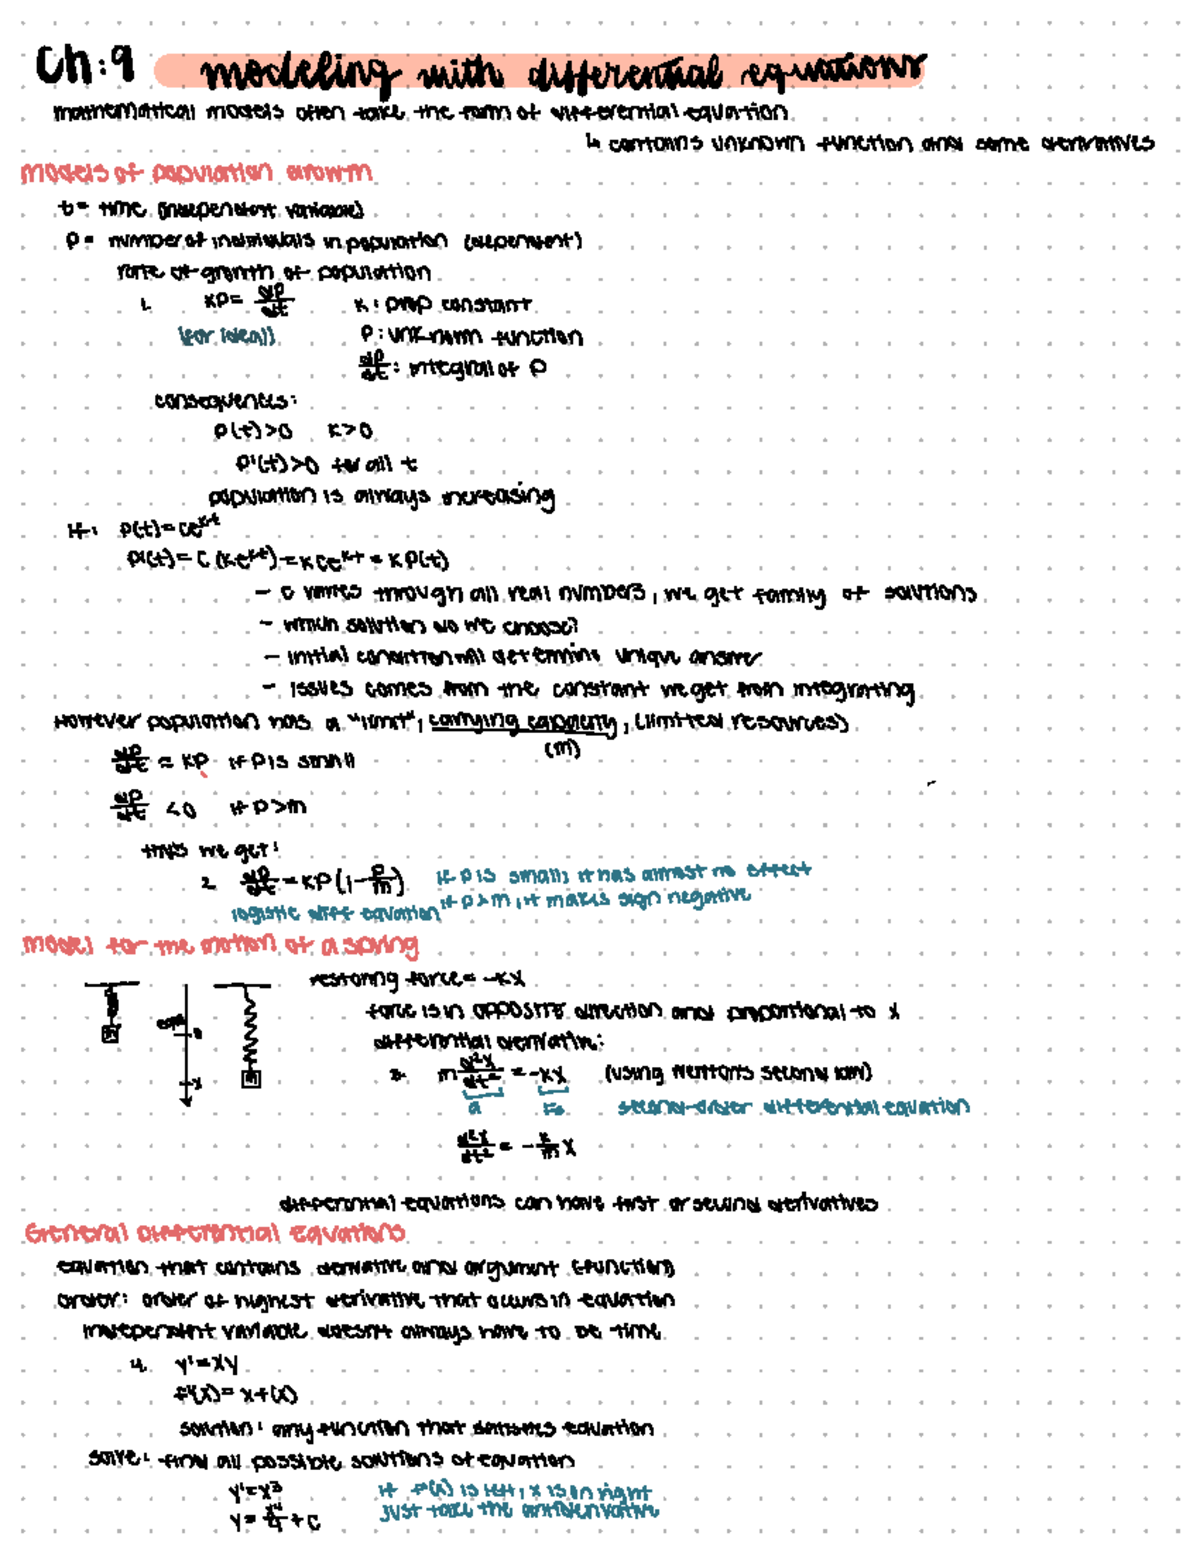 Ch:9 modeling with differential equations
mathematical models often take the form of differential equation
↳ contains unknown function and some derivatives
models of population growth
t = time (independent variable)
P = number of individuals in population (dependent)
rate of growth of population
1. KP = dP/dt   K: prop constant
(for ideal)   P: unknown function
dP/dt: integral of P
consequences:
P(t)>0   K>0
P'(t)>0 for all t
population is always increasing
If: P(t) = Ce^kt
P'(t) = C(Ke^kt) = KCe^kt = KP(t)
- C varies through all real numbers, we get family of solutions
- which solution do we choose?
- initial condition will determine unique answer
- issues comes from the constant we get from integrating
However population has a "limit", carrying capacity, (limited resources)
(m)
dP/dt ≈ KP if P is small
dP/dt <0 if P>m
thus we get:
2. dP/dt = KP(1-P/m)   if P is small, it has almost no effect
logistic diff equation   if P>m, it makes sign negative
model for the motion of a spring
restoring force = -KX
force is in opposite direction and proportional to x
differential derivative:
3. m d²x/dt² = -KX   (using Newton's second law)
a   Fs   second-order differential equation
d²x/dt² = -K/m X
differential equations can have first or second derivatives
General Differential Equations
equation that contains derivative and argument (function)
order: order of highest derivative that occurs in equation
independent variable doesn't always have to be time
4. y'=xy
f'(x) = xf(x)
solution: any function that satisfies equation
solve: find all possible solutions of equation
y'=x³   if f'(x) is left, x is on right
y = x⁴/4 + C   just take the antiderivative